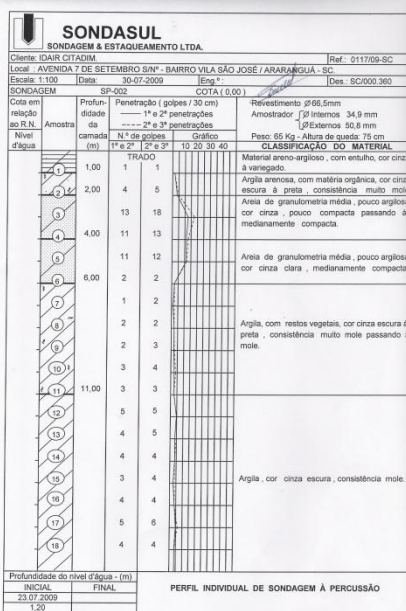 SONDASUL
SONDAGEM & ESTAQUEAMENTO LTDA.
Cliente: IDAIR CITADIM. Ref.: 0117/09-SC
Local : AVENIDA 7 DE SETEMBRO S/Nº - BAIRRO VILA SÃO JOSÉ / ARARANGUÁ - SC.
Escala: 1:100 Data: 30-07-2009 Eng.º : Des.: SC/000.360
SONDAGEM SP-002 COTA ( 0,00 )
Cota em relação ao R.N.
Nível d'água
Amostra
Profundidade da camada (m)
Penetração ( golpes / 30 cm)
1ª e 2ª penetrações
2ª e 3ª penetrações
N.º de golpes Gráfico
1ª e 2ª 2ª e 3ª 10 20 30 40
Revestimento Ø66,5mm
Amostrador Ø Internos 34,9 mm
Ø Externos 50,8 mm
Peso: 65 Kg - Altura de queda: 75 cm
CLASSIFICAÇÃO DO MATERIAL
TRADO
1 1,00 1 1
2 2,00 4 5
3 13 18
4 4,00 11 13
5 11 12
6 6,00 2 2
7 1 2
8 2 2
9 2 3
10 3 4
11 11,00 3 3
12 5 5
13 4 5
14 4 4
15 3 4
16 4 4
17 5 6
18 4 4
Material areno-argiloso , com entulho, cor cinza
à variegado.
Argila arenosa, com matéria orgânica, cor cinza
escura à preta , consistência muito mole
Areia de granulometria média , pouco argilosa
cor cinza , pouco compacta passando à
medianamente compacta.
Areia de granulometria média , pouco argilosa
cor cinza clara , medianamente compacta
Argila, com restos vegetais, cor cinza escura à
preta , consistência muito mole passando à
mole.
Argila , cor cinza escura , consistência mole.
Profundidade do nível d'água - (m)
INICIAL FINAL
23.07.2009
1,20
PERFIL INDIVIDUAL DE SONDAGEM À PERCUSSÃO